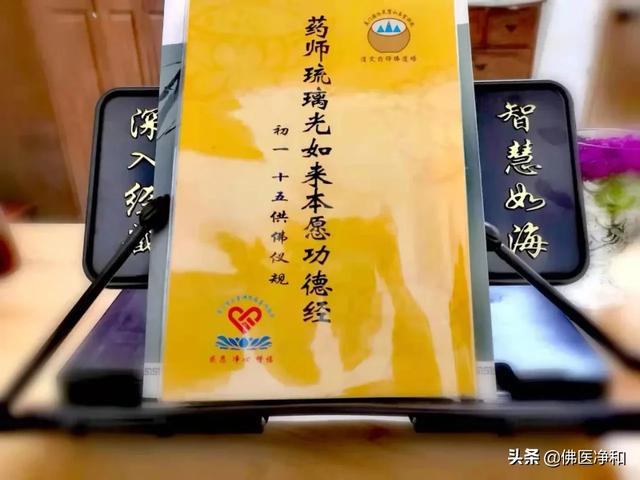 药师琉璃光如来本愿功德经
初一 十五供佛仪规
深入经藏
智慧如海
慈悲 净心 精进
头条 @佛医净和